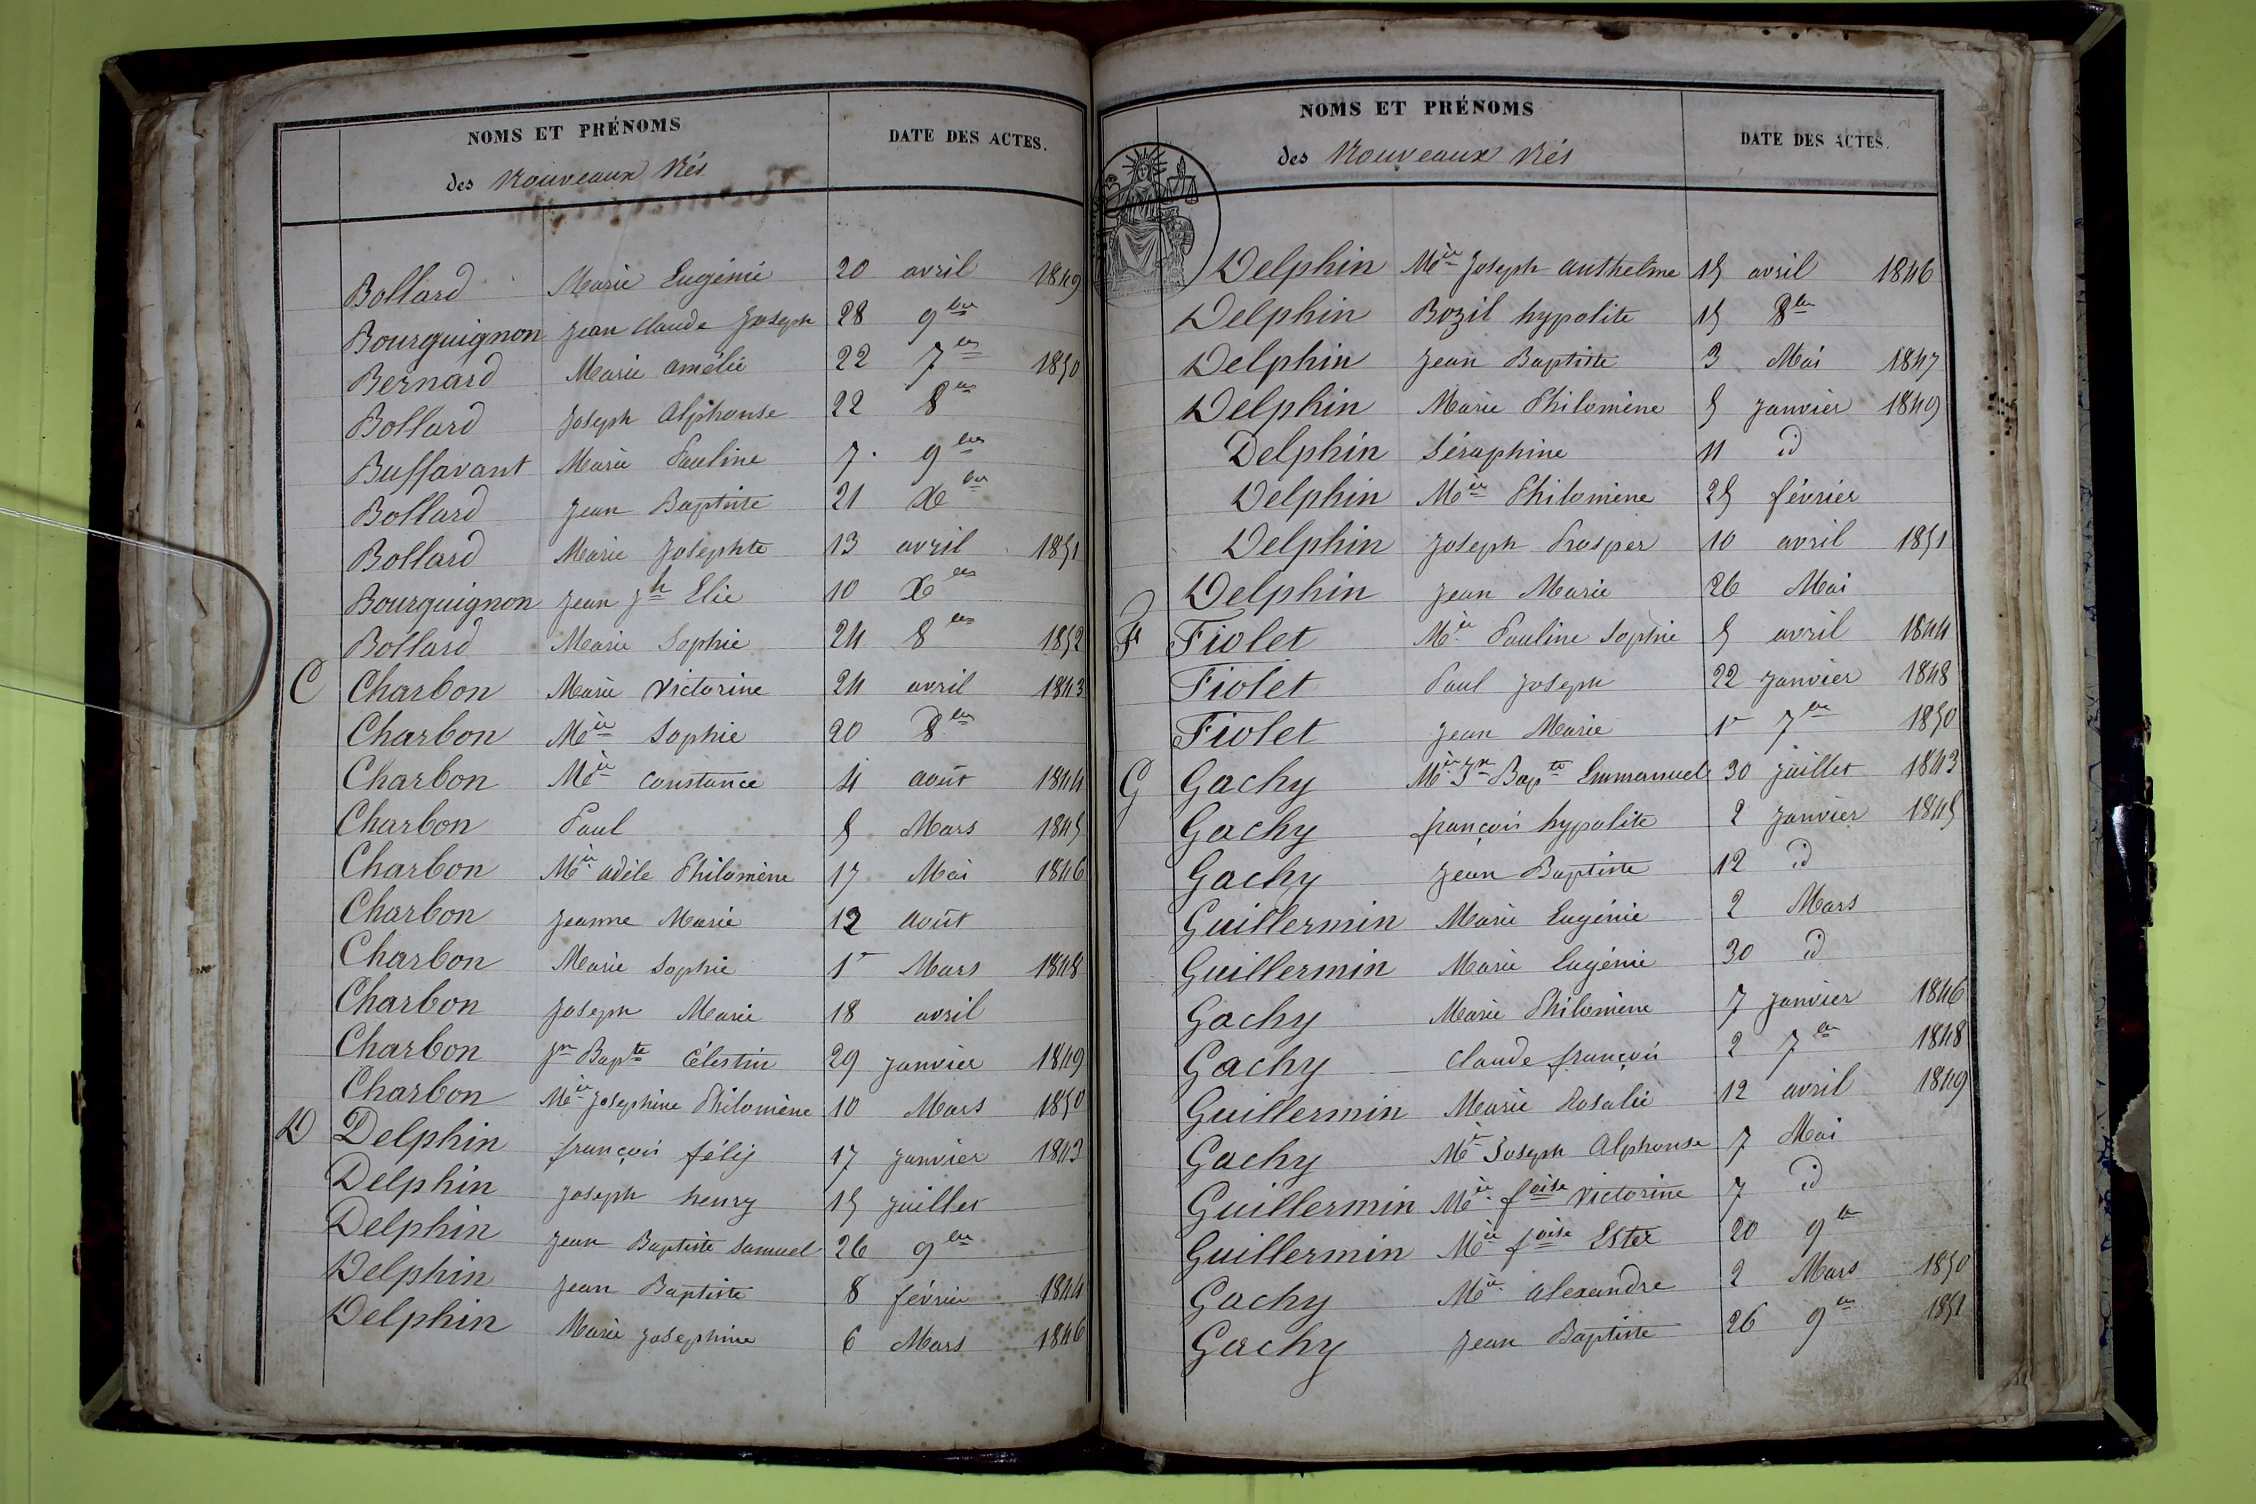 NOMS ET PRÉNOMS
DATE DES ACTES.
des Nouveaux Nés
Bollard Marie Eugénie 20 avril 1849
Bourguignon Jean Claude Joseph 28 9bre
Bernard Marie Amélie 22 7bre 1850
Bollard Joseph Alphonse 22 8bre
Buffavant Marie Pauline 7. 9bre
Bollard Jean Baptiste 21 Xbre
Bollard Marie Josephte 13 avril 1851
Bourguignon Jean Jh Elie 10 Xbre
Bollard Marie Sophie 24 8bre 1852
C Charbon Marie Victorine 24 avril 1843
Charbon Mie Sophie 20 8bre
Charbon Mie Constance 4 août 1844
Charbon Paul 5 Mars 1845
Charbon Mie Adèle Philomène 17 Mai 1846
Charbon Jeanne Marie 12 août
Charbon Marie Sophie 1er Mars 1848
Charbon Joseph Marie 18 avril
Charbon Jn Bapte Célestin 29 janvier 1849
Charbon Mie Josephine Philomène 10 Mars 1850
D Delphin françois félix 17 janvier 1843
Delphin Joseph henry 15 juillet
Delphin Jean Baptiste Samuel 26 9bre
Delphin Jean Baptiste 8 février 1844
Delphin Marie Josephine 6 Mars 1846
NOMS ET PRÉNOMS
DATE DES ACTES.
des Nouveaux Nés
Delphin Mie Joseph Anthelme 15 avril 1846
Delphin Bazil hypolite 15 8bre
Delphin Jean Baptiste 3 Mai 1847
Delphin Marie Philomène 5 janvier 1849
Delphin Séraphine 11 id
Delphin Mie Philomène 25 février
Delphin Joseph Prosper 10 avril 1851
Delphin Jean Marie 26 Mai
F Fiolet Mie Pauline Sophie 5 avril 1844
Fiolet Paul Joseph 22 janvier 1848
Fiolet Jean Marie 1er 7bre 1850
G Gachy Mie Jn Bapte Emmanuel 30 juillet 1843
Gachy françois hypolite 2 janvier 1845
Gachy Jean Baptiste 12 id
Guillermin Marie Eugénie 2 Mars
Guillermin Marie Eugénie 30 id
Gachy Marie Philomène 7 janvier 1846
Gachy Claude françois 2 7bre 1848
Guillermin Marie Rosalie 12 avril 1849
Gachy Mie Joseph Alphonse 7 Mai
Guillermin Mie foise Victorine 7 id
Guillermin Mie foise Ester 20 9bre
Gachy Mie Alexandre 2 Mars 1850
Gachy Jean Baptiste 26 9bre 1851